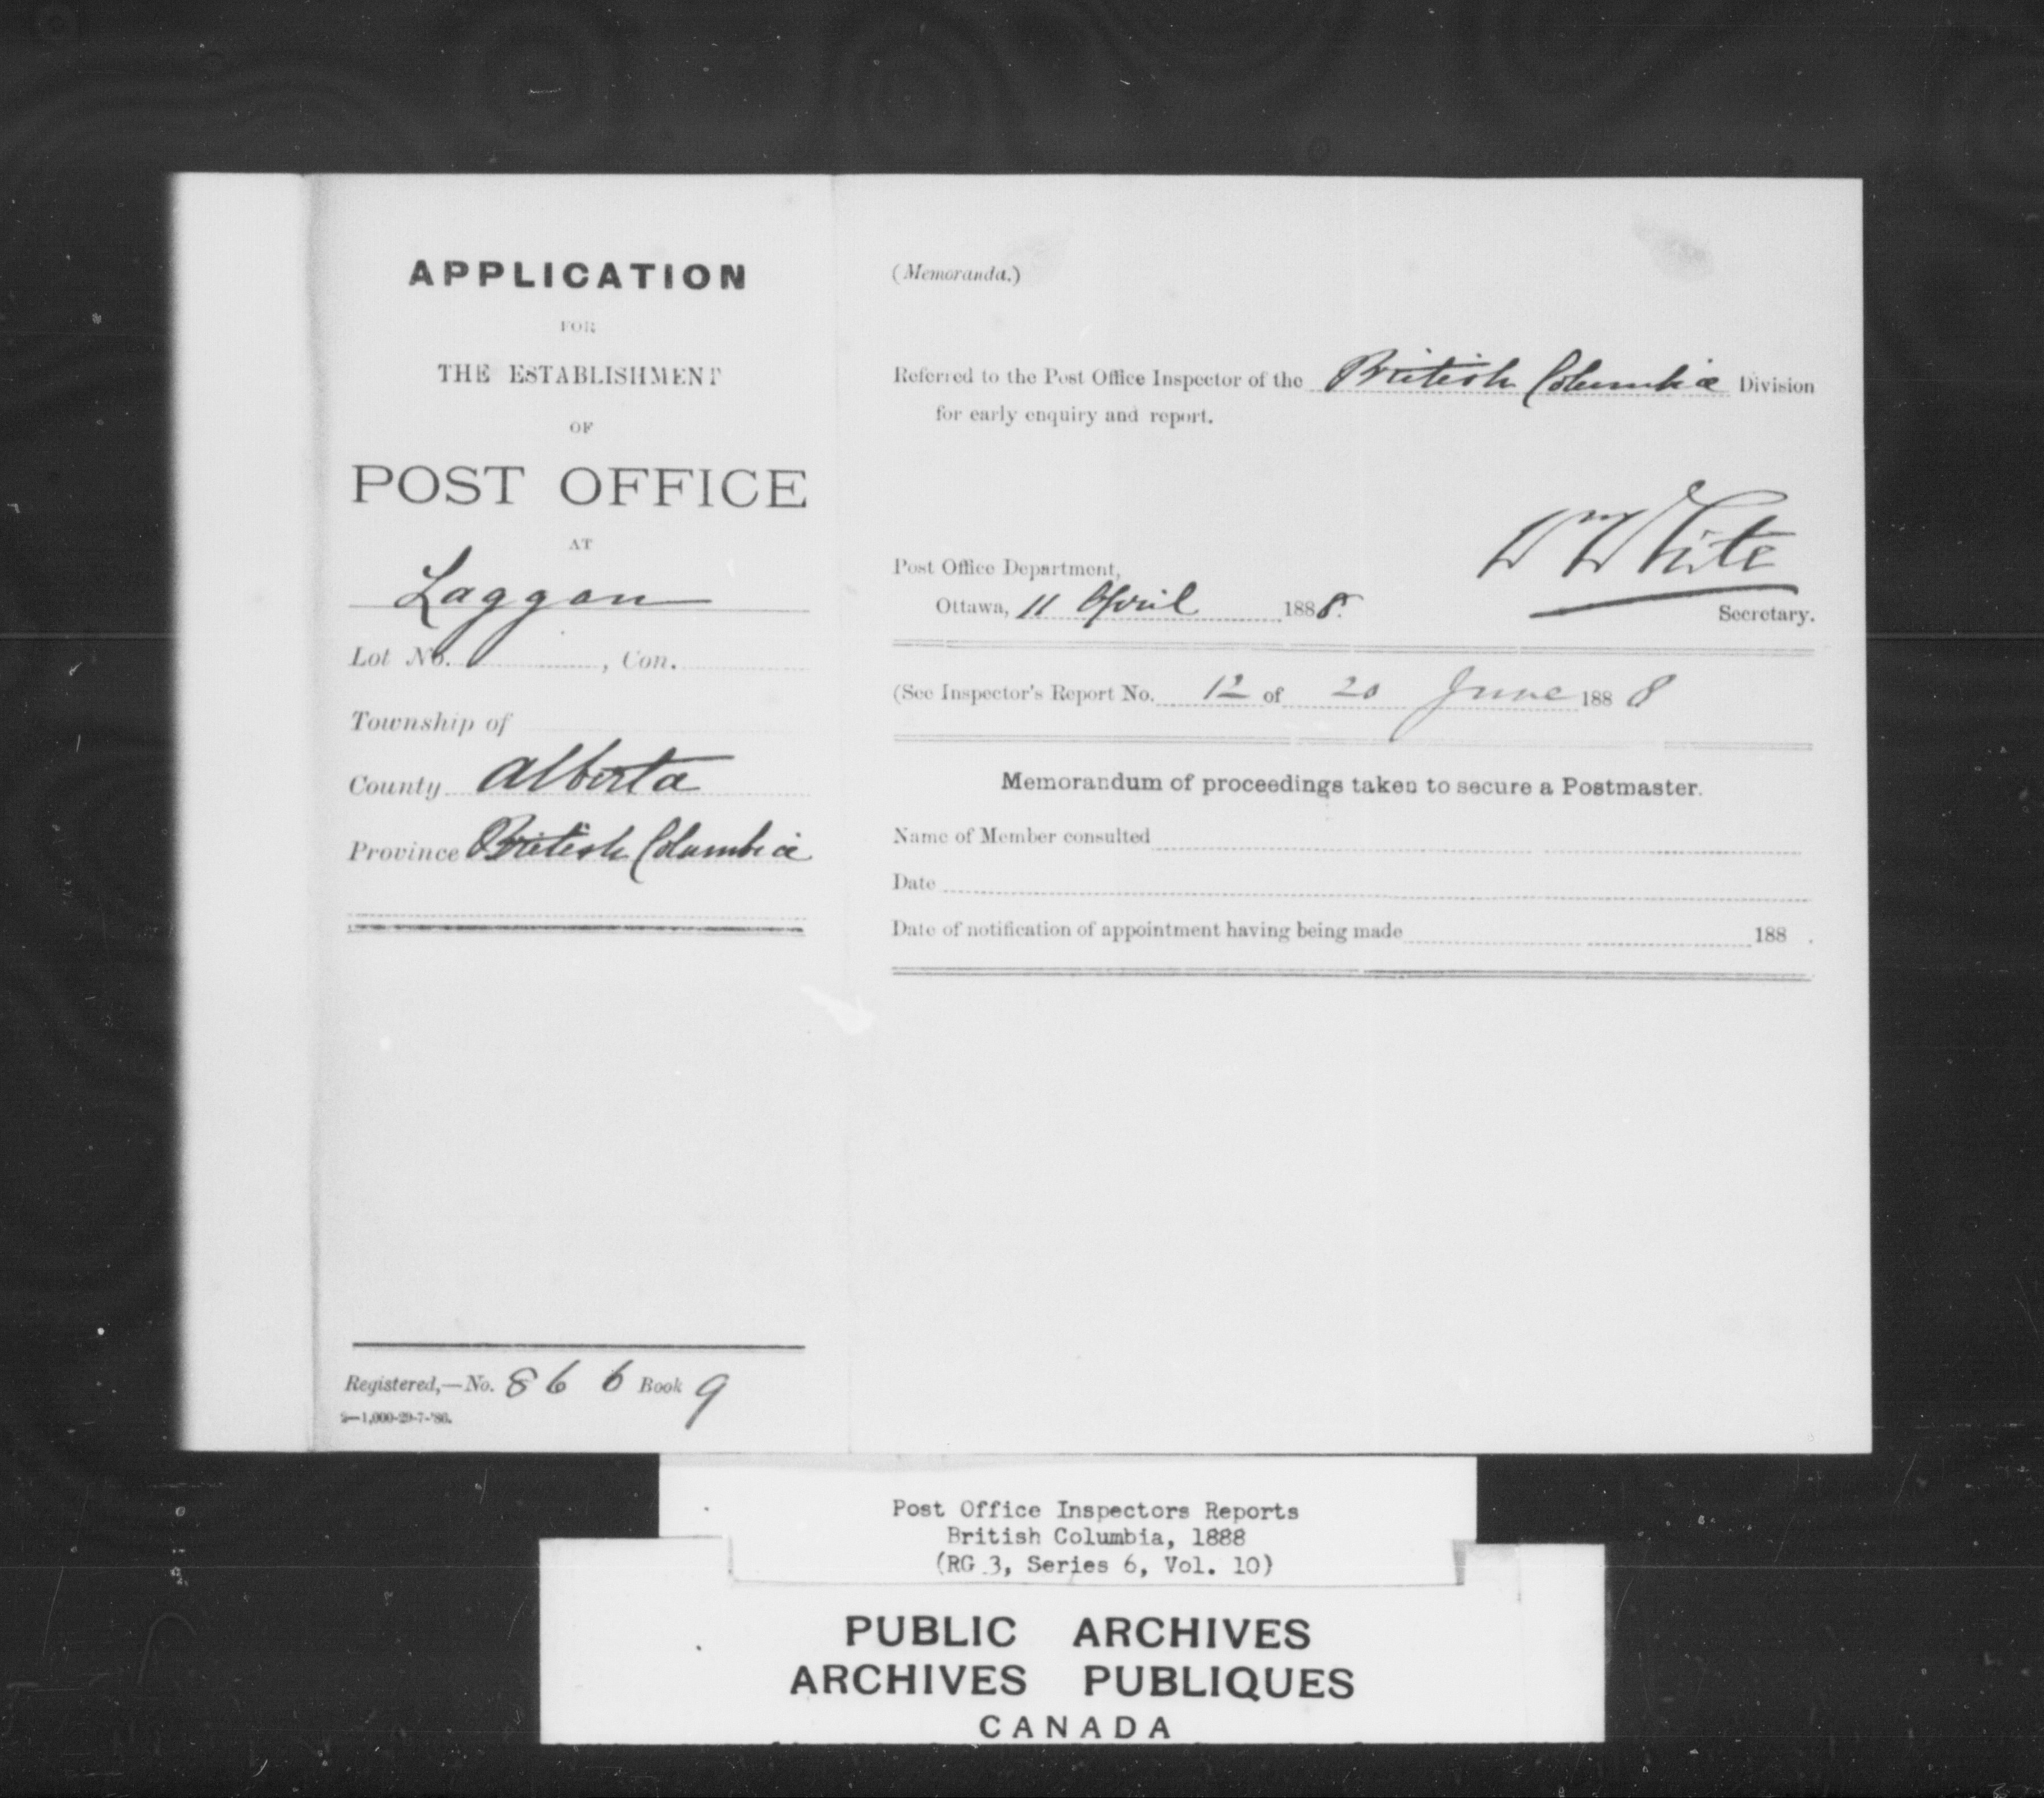 APPLICATION
FOR
THE ESTABLISHMENT
OF
POST OFFICE
AT
Laggan
Lot No. , Con.
Township of
County Alberta
Province British Columbia
Registered,—No. 866 Book 9
2—1,000-29-7-'86.
(Memoranda.)
Referred to the Post Office Inspector of the British Columbia Division
for early enquiry and report.
Wm White
Post Office Department,
Ottawa, 11 April 1888.
Secretary.
(See Inspector's Report No. 12 of 20 June 1888
Memorandum of proceedings taken to secure a Postmaster.
Name of Member consulted
Date
Date of notification of appointment having being made 188 .
Post Office Inspectors Reports
British Columbia, 1888
(RG 3, Series 6, Vol. 10)
PUBLIC ARCHIVES
ARCHIVES PUBLIQUES
CANADA